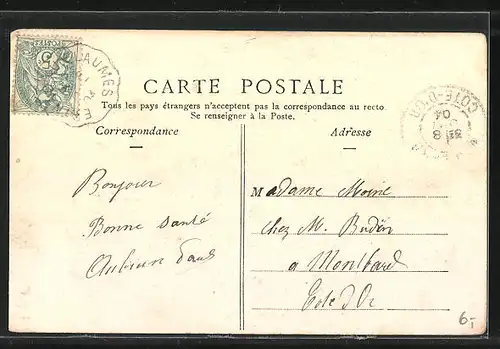 CARTE POSTALE
Tous les pays étrangers n'acceptent pas la correspondance au recto
Se renseigner à la Poste.
Correspondance
Adresse
Bonjour
Bonne santé
Madame Moine
chez M. Budin
a Montbard
Cote d'Or
COTE-D'OR
04
6.-